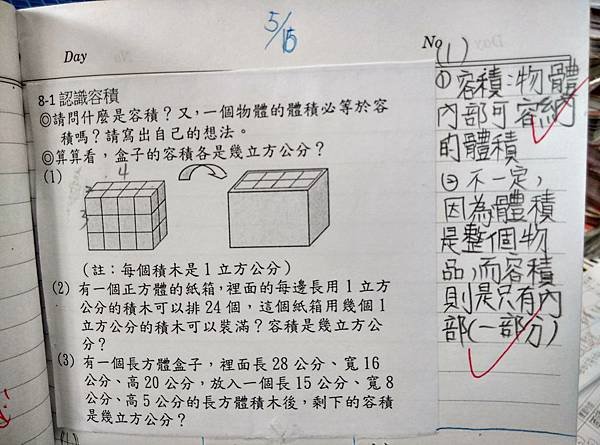 5/15
Day
No
8-1 認識容積
◎請問什麼是容積？又，一個物體的體積必等於容
積嗎？請寫出自己的想法。
◎算算看，盒子的容積各是幾立方公分？
(1)
4
3
(註：每個積木是 1 立方公分)
(2) 有一個正方體的紙箱，裡面的每邊長用 1 立方
公分的積木可以排 24 個，這個紙箱用幾個 1
立方公分的積木可以裝滿？容積是幾立方公
分？
(3) 有一個長方體盒子，裡面長 28 公分、寬 16
公分、高 20 公分，放入一個長 15 公分、寬 8
公分、高 5 公分的長方體積木後，剩下的容積
是幾立方公分？
(1)
① 容積：物體
內部可容納
的體積
② 不一定，
因為體積
是整個物
品，而容積
則是只有內
部(一部分)